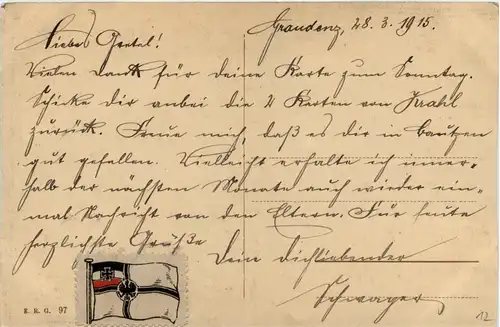 Graudenz, 28.3.1915.
Liebes Gretel!
Vielen Dank für deine Karte zum Sonntag.
Schicke dir anbei die 2 Karten von Krahl
zurück. Freue mich, daß es dir in Bautzen
gut gefallen. Vielleicht erhalte ich inner-
halb der nächsten Monate auch wieder ein-
mal Nachricht von den Eltern. Für heute
herzlichste Grüße
Dein dichliebender
Schwager
E. R. G. 97
12